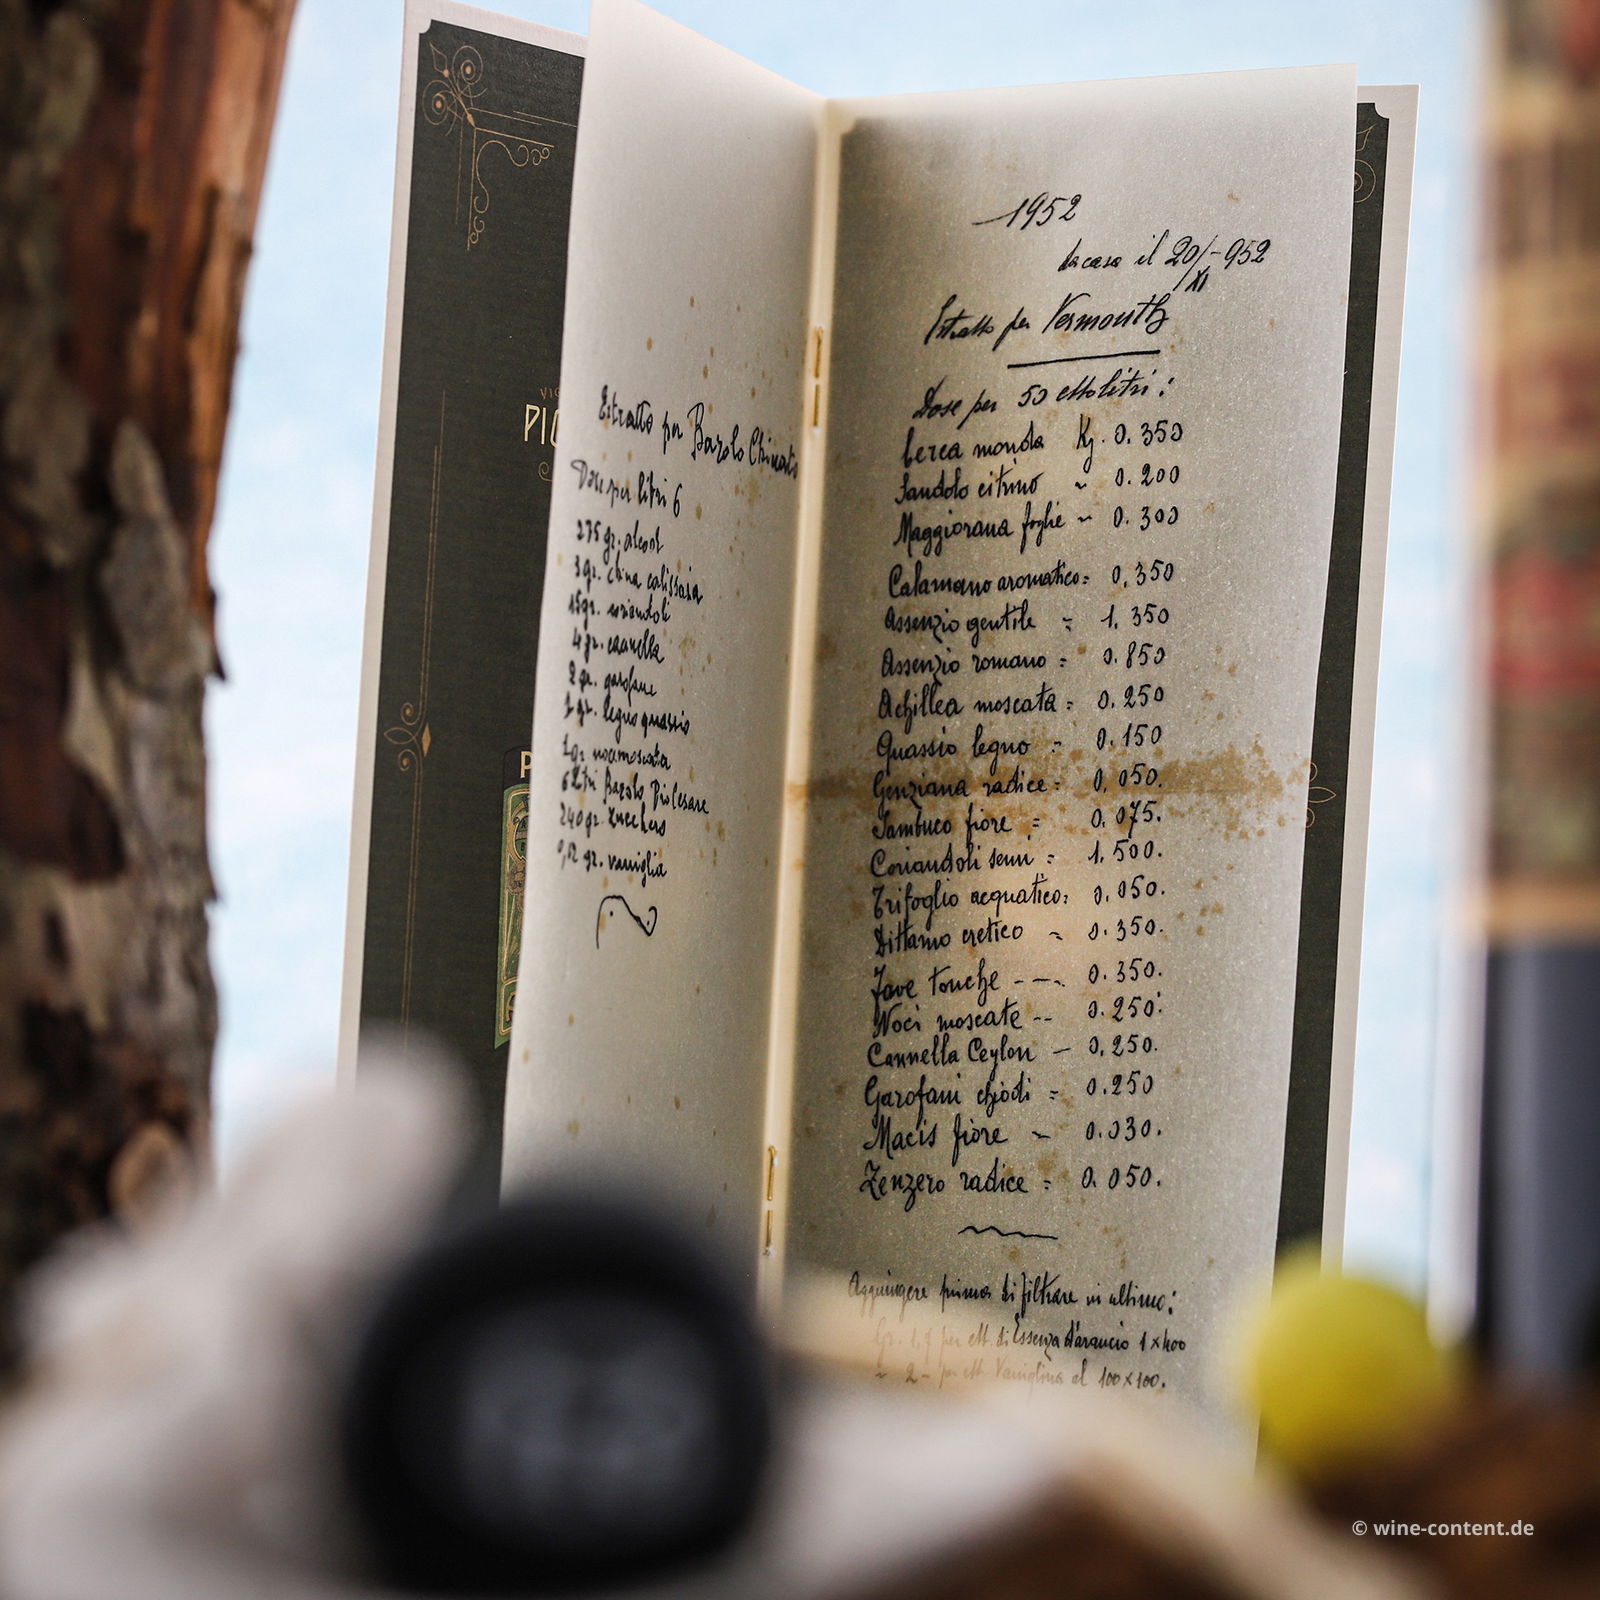 PIO
P
Estratto per Barolo Chinato
Dose per litri 6
275 gr. alcool
3 gr. china calissaia
15 gr. coriandoli
4 gr. cannella
2 gr. garofani
1 gr. legno quassio
1 gr. nocemoscata
6 Litri Barolo Pio Cesare
240 gr. zucchero
0,12 gr. vaniglia
1952
il 20/XI-952
Estratto per Vermouth
Dose per 50 ettolitri:
monda Kg. 0.350
Sandolo citrino ~ 0.200
Maggiorana foglie ~ 0.300
Calamano aromatico = 0,350
Assenzio gentile = 1. 350
Assenzio romano = 0.850
Achillea moscata = 0.250
Quassio legno = 0.150
Genziana radice = 0,050.
Sambuco fiore = 0.075.
Coriandoli semi = 1.500.
Trifoglio acquatico = 0.050.
Dittamo cretico ~ 0.350.
Fave tonche --- 0.350.
Noci moscate -- 0.250.
Cannella Ceylon — 0,250.
Garofani chiodi = 0.250
Macis fiore ~ 0.030.
Zenzero radice = 0.050.
Aggiungere prima di filtrare in ultimo:
Gr. per ett. di Essenza d'arancio 1x400
" 2 - per ett. Vaniglina al 100x100.
© wine-content.de